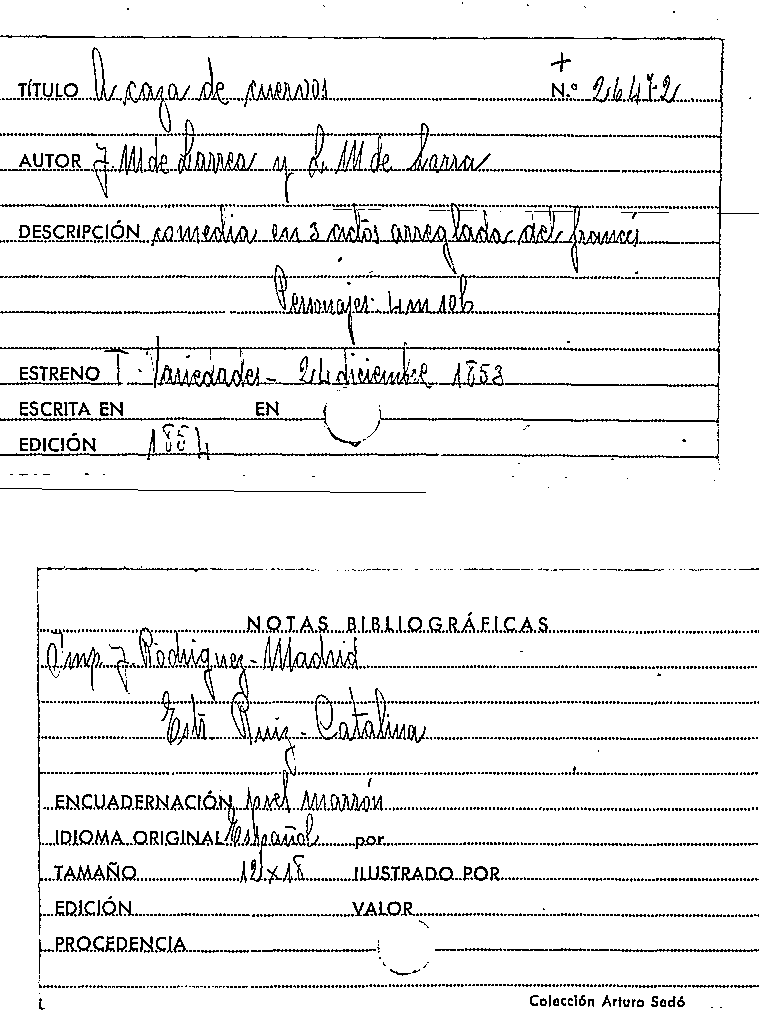 +
TÍTULO A caza de cuervos N.º 26472
AUTOR J. M de Larrea y L. M de Larra
DESCRIPCIÓN comedia en 3 actos arreglada del francés
Personajes: 4m 10h
ESTRENO T. Variedades - 24 diciembre 1853
ESCRITA EN EN
EDICIÓN 1854
NOTAS BIBLIOGRÁFICAS
Imp J. Rodriguez - Madrid
Estr. Ruiz - Catalina
ENCUADERNACIÓN piel marrón
IDIOMA ORIGINAL Español por
TAMAÑO 12 x 18 ILUSTRADO POR
EDICIÓN VALOR
PROCEDENCIA
Colección Arturo Sedó